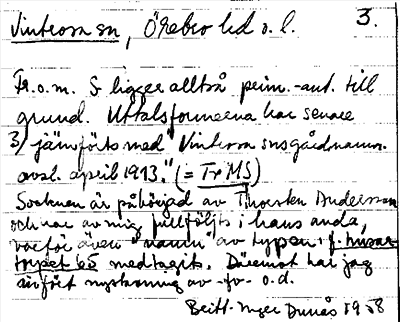 Vintrosa sn, Örebro hd ö. l. 3.
Fr.o.m. S ligger alltså prim.-ant. till
grund. Uttalsformerna har senare
3/ jämförts med "Vintrosa snsgårdnamn
avsl. april 1913." (= TrMS)
Socknen är påbörjad av Thorsten Andersson
och har av mig fullföljts i hans anda,
varför även "namn" av typen
torpet 65 medtagits. Däremot har jag
infört nyskrivning av -fv- o.d.
Britt-Inger Dunås